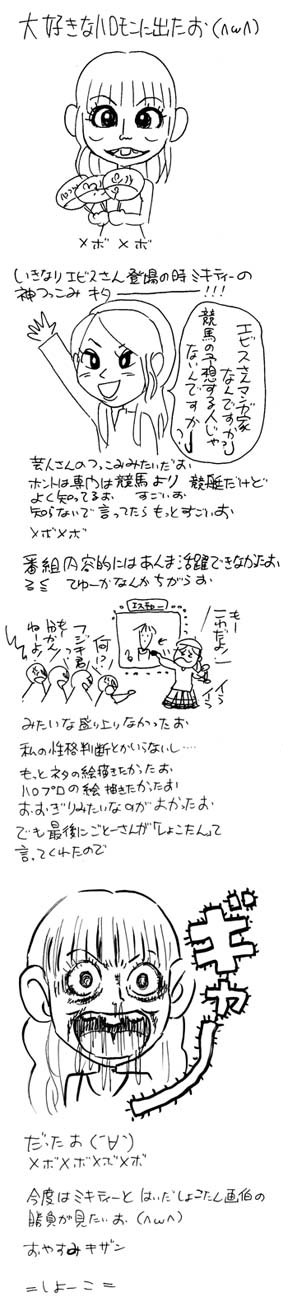 大好きなハロモンに出たお(ΛωΛ)
メボ メボ
いきなりエビスさん登場の時ミキティーの
神つっこみ キター!!!
エビスさんマンガ家
なんですか?
競馬の予想する人じゃ
ないんですか?
芸人さんのつっこみみたいだお
ホントは専門は競馬より 競艇だけど
よく知ってるお すごいお
知らないで言ってたらもっとすごいお
メボメボ
番組内容的にはあんま活躍できなかたお
てゆーかなんかちがうお
もー
これだよ!
何!?
フジキ君!
わかんねーよ!
イラ
イラ
みたいな盛り上りなかったお
私の性格判断とかいらないし‥‥
もっとネタの絵描きたかったお
ハロプロの絵 描きたかったお
おおぎりみたいなのがよかったお
でも最後にごとーさんが「しょこたん」って
言ってくれたので
ギャー
だったお(´∀`)
メボメボメボメボ
今度はミキティーと はいだしょうこたん画伯の
勝負が見たいお(ΛωΛ)
おやすみキザン
=しょーこ=